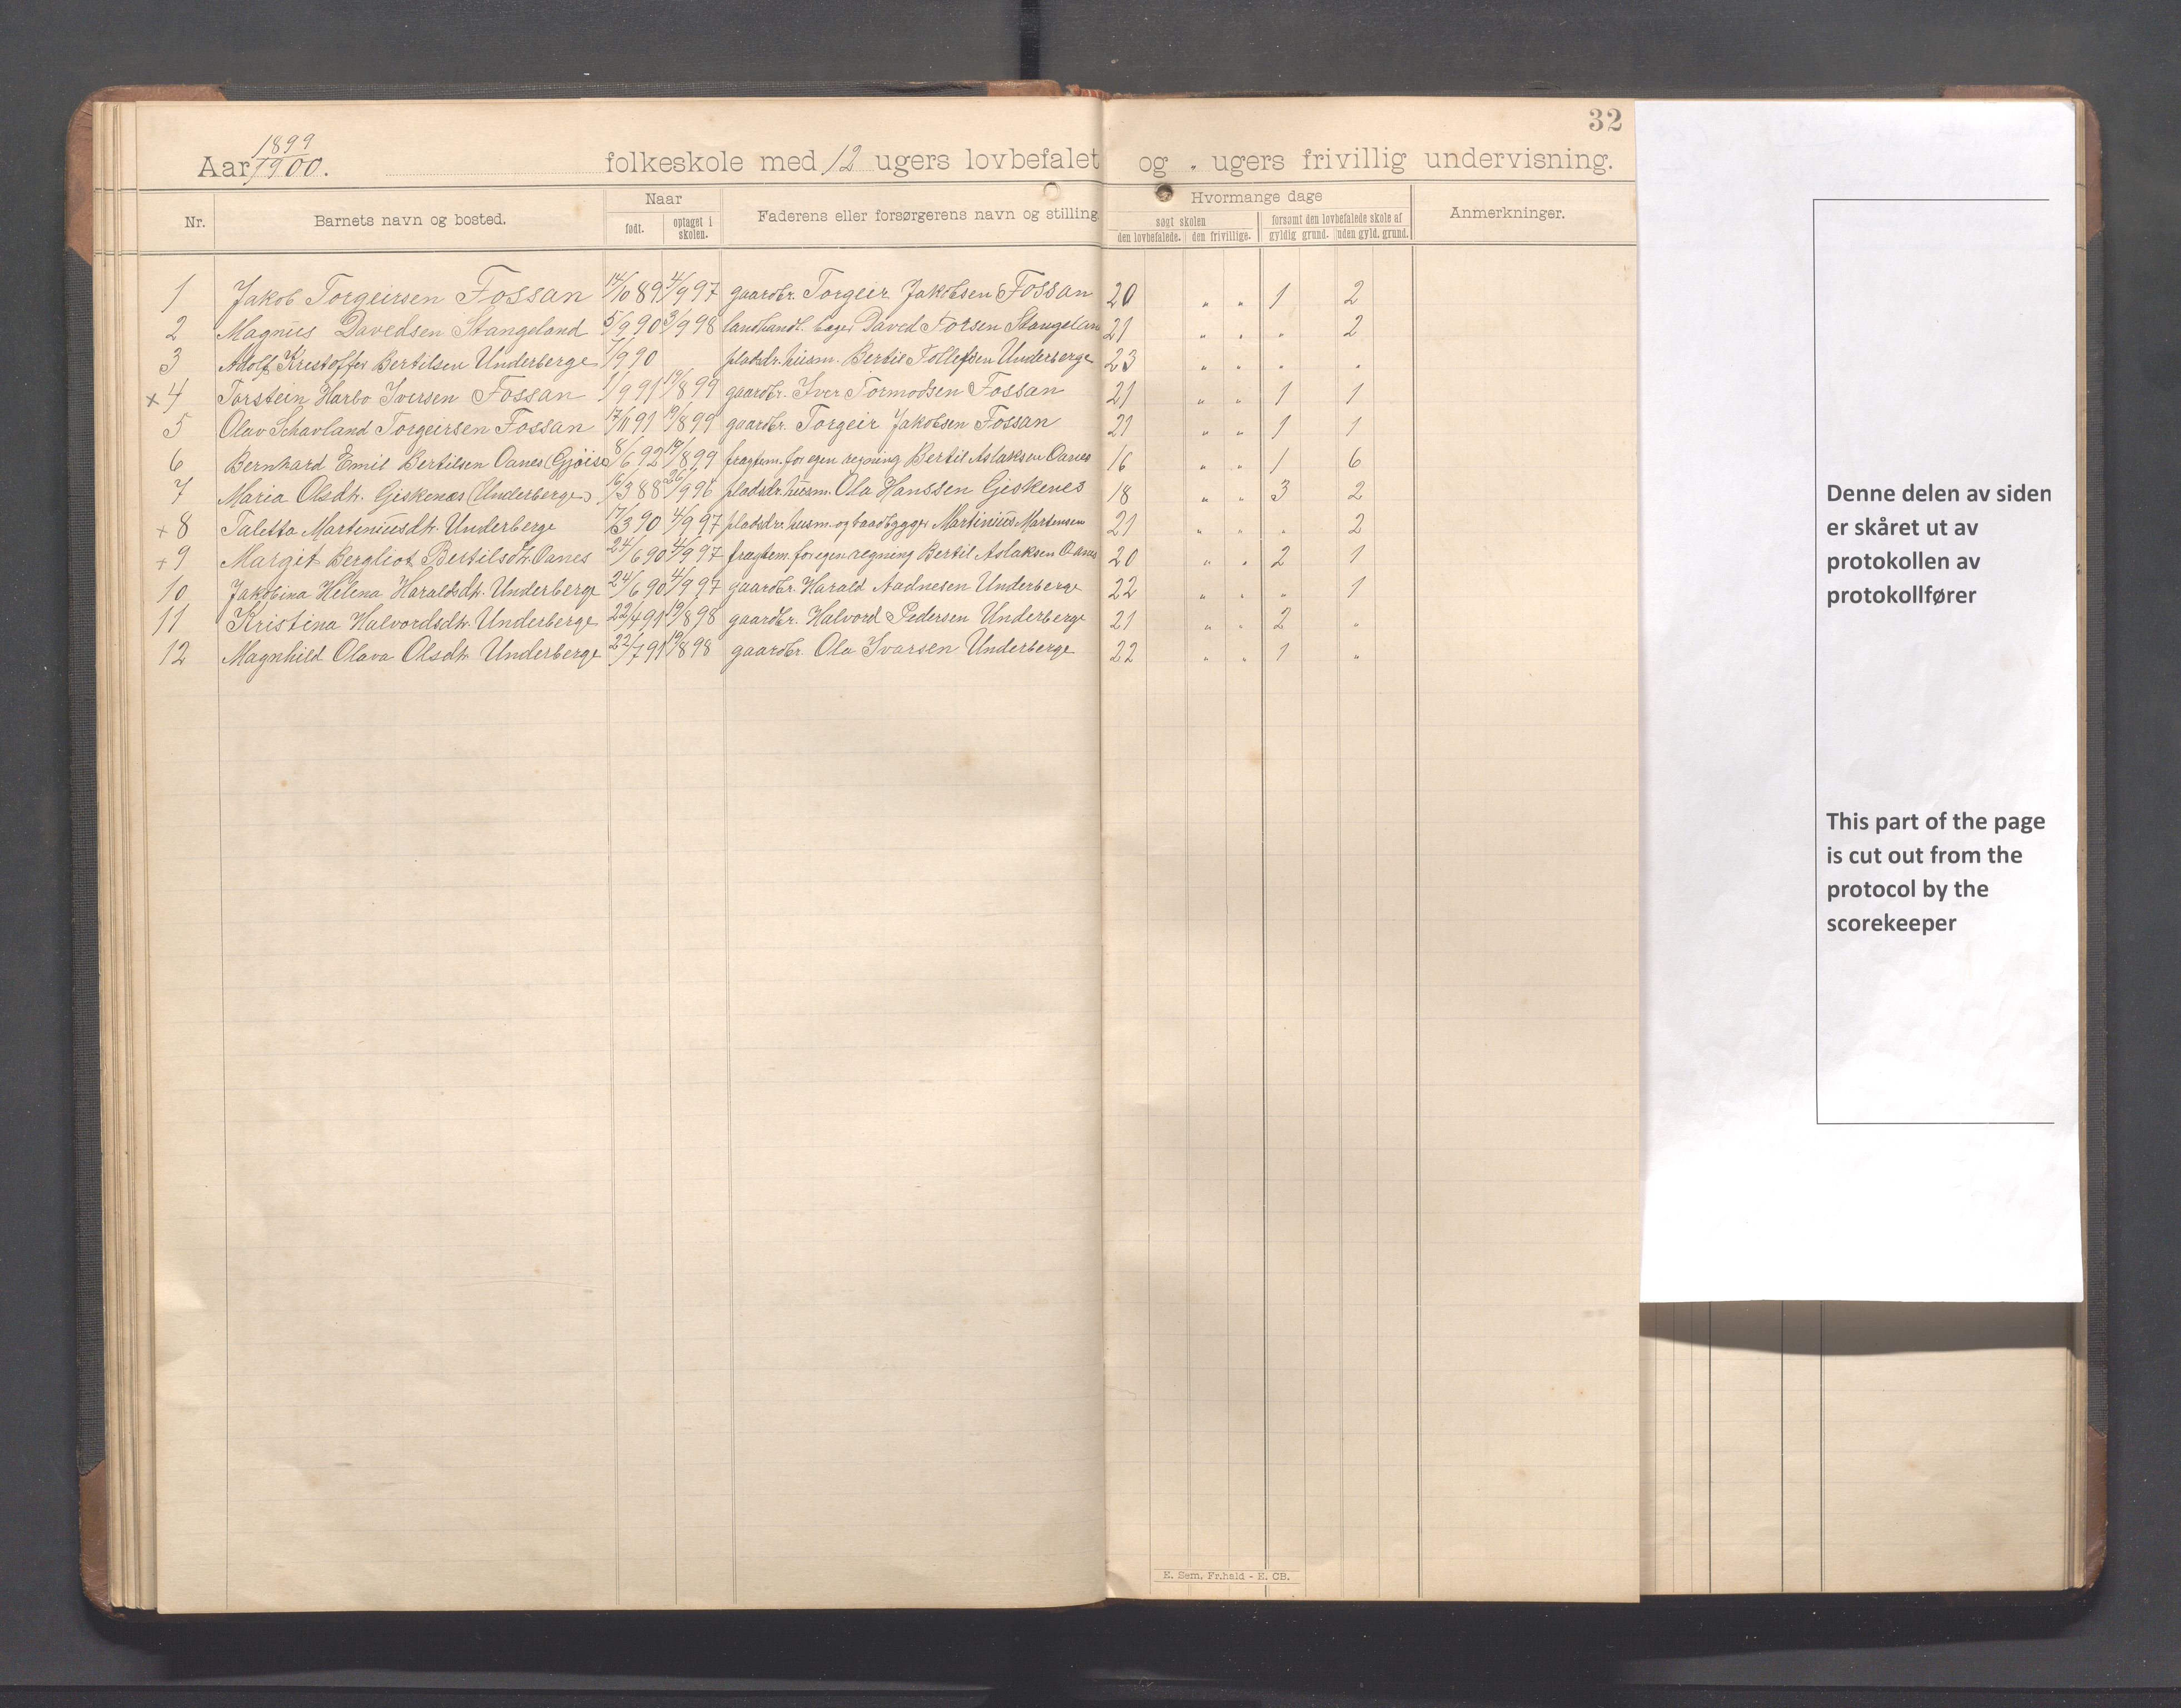 32
Aar 1899/1900. folkeskole med 12 ugers lovbefalet og „ ugers frivillig undervisning.
Nr. Barnets navn og bosted. Naar født. optaget i skolen. Faderens eller forsørgerens navn og stilling Hvormange dage søgt skolen den lovbefalede. den frivillige. forsømt den lovbefalede skole af gyldig grund. uden gyld. grund. Anmerkninger.
1 Jakob Torgeirsen Fossan 14/10 89 4/9 97 gaardbr. Torgeir Jakobsen Fossan 20 „ „ 1 2
2 Magnus Davedsen Stangeland 5/9 90 3/9 98 landhandl. bager David Forsen Stangelan 21 „ „ „ 2
3 Adolf Kristoffer Bertilsen Underberge 1/9 90 pladsbr. husm. Bertil Tollefsen Underberge 23 „ „ „ „
x 4 Torstein Harbo Iversen Fossan 1/9 91 19/8 99 gaardbr. Iver Tormodsen Fossan 21 „ „ 1 1
5 Olav Schavland Torgeirsen Fossan 17/11 91 19/8 99 gaardbr. Torgeir Jakobsen Fossan 21 „ „ 1 1
6 Bernhard Emil Bertilsen Oanes (Gjöise 8/6 92 19/8 99 fragtem. for egen regning Bertil Aslaksen Oanes 16 „ „ 1 6
7 Maria Olsdtr. Giskenes (Underberge) 16/3 88 26/9 96 pladsbr. husm. Ola Hanssen Giskenes 18 „ „ 3 2
+ 8 Taletta Marteniusdtr. Underberge 17/3 90 4/9 97 pladsbr. husm. og baadbygger Martinius Martensen 21 „ „ „ 2
+ 9 Margit Bergliot Bertilsdtr. Oanes 24/6 90 4/9 97 fragtem. for egen regning Bertil Aslaksen Oanes 20 „ „ 2 1
10 Jakobina Helena Haraldsdtr. Underberge 24/6 90 4/9 97 gaardbr. Harald Aadnesen Underberge 22 „ „ „ 1
11 Kristina Halvordsdtr. Underberge 22/4 91 19/8 98 gaardbr. Halvord Pedersen Underberge 21 „ „ 2 „
12 Magnhild Olava Olsdtr. Underberge 22/7 91 19/8 98 gaardbr. Ola Ivarsen Underberge 22 „ „ 1 „
E. Sem, Fr.hald - E. CB.
Denne delen av siden
er skåret ut av
protokollen av
protokollfører
This part of the page
is cut out from the
protocol by the
scorekeeper